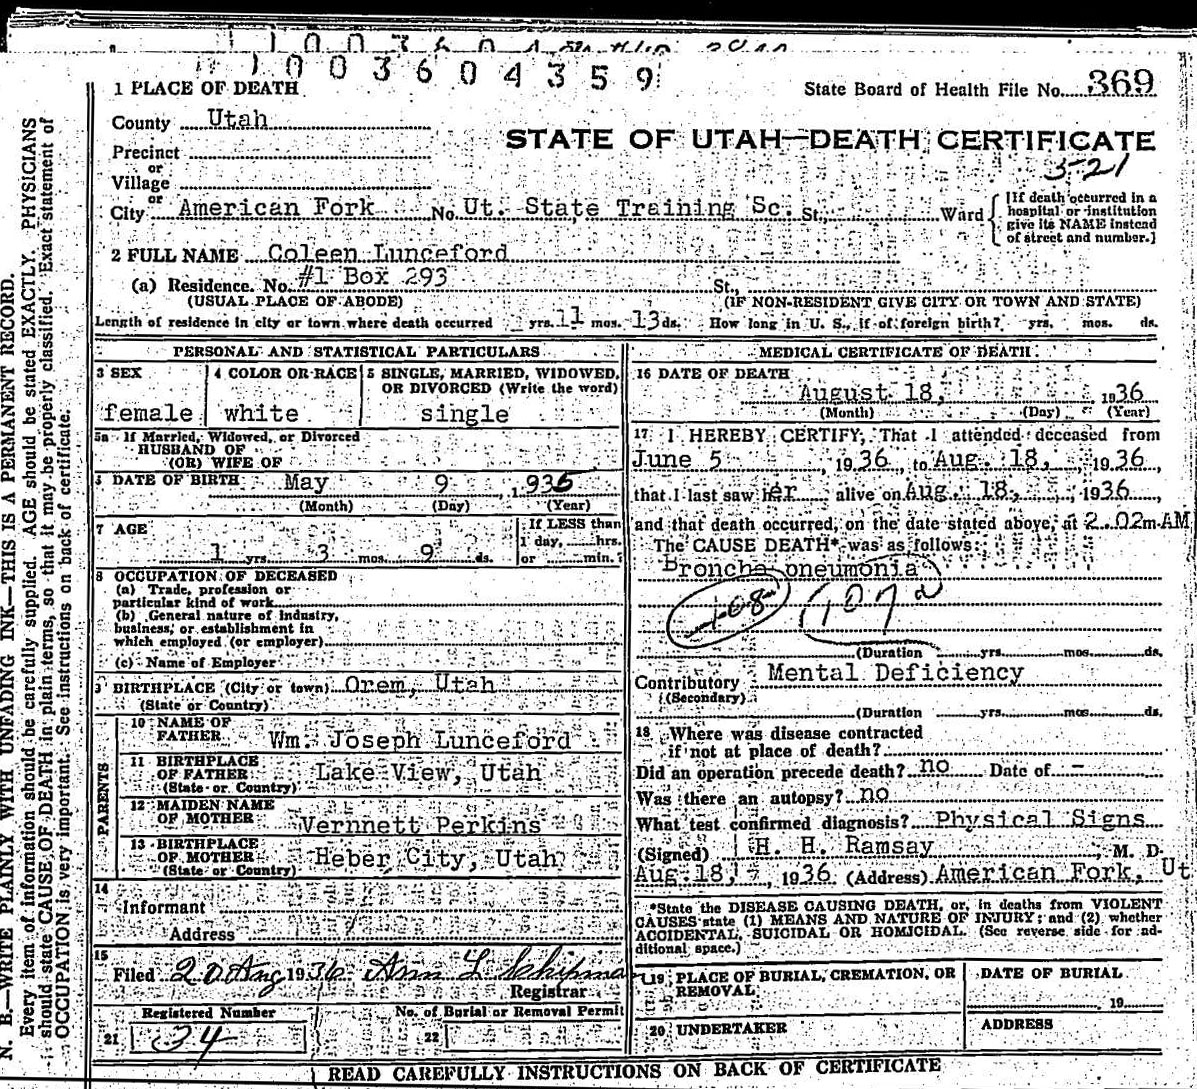 1003604359
1 PLACE OF DEATH
State Board of Health File No. 369
County Utah
STATE OF UTAH—DEATH CERTIFICATE
Precinct
or
Village
521
or
City American Fork No. Ut. State Training Sc. St., Ward
[If death occurred in a
hospital or institution
give its NAME instead
of street and number.]
2 FULL NAME Coleen Lunceford
(a) Residence. No. #1 Box 293 St.,
(USUAL PLACE OF ABODE) (IF NON-RESIDENT GIVE CITY OR TOWN AND STATE)
Length of residence in city or town where death occurred yrs. 11 mos. 13 ds. How long in U. S., if of foreign birth? yrs. mos. ds.
PERSONAL AND STATISTICAL PARTICULARS
3 SEX
female
4 COLOR OR RACE
white
5 SINGLE, MARRIED, WIDOWED,
OR DIVORCED (Write the word)
single
5a If Married, Widowed, or Divorced
HUSBAND OF
(OR) WIFE OF
DATE OF BIRTH May 9 1935
(Month) (Day) (Year)
7 AGE
1 yrs. 3 mos. 9 ds.
If LESS than
1 day, hrs.
or min.?
8 OCCUPATION OF DECEASED
(a) Trade, profession or
particular kind of work
(b) General nature of industry,
business, or establishment in
which employed (or employer)
(c) Name of Employer
9 BIRTHPLACE (City or town) Orem, Utah
(State or Country)
PARENTS
10 NAME OF
FATHER Wm. Joseph Lunceford
11 BIRTHPLACE
OF FATHER Lake View, Utah
(State or Country)
12 MAIDEN NAME
OF MOTHER Vernnett Perkins
13 BIRTHPLACE
OF MOTHER Heber City, Utah
(State or Country)
14
Informant
Address
15
Filed 20 Aug 1936 Ann L
Registrar
Registered Number No. of Burial or Removal Permit
21 34 22
MEDICAL CERTIFICATE OF DEATH
16 DATE OF DEATH
August 18, 1936
(Month) (Day) (Year)
17 I HEREBY CERTIFY, That I attended deceased from
June 5, 1936, to Aug. 18, 1936,
that I last saw her alive on Aug. 18, 1936
and that death occurred, on the date stated above, at 2.02m.AM
The CAUSE DEATH* was as follows:
Broncha oneumonia
108 107a
(Duration yrs. mos. ds.
Contributory Mental Deficiency
(Secondary)
(Duration yrs. mos. ds.
18 Where was disease contracted
if not at place of death?
Did an operation precede death? no Date of -
Was there an autopsy? no
What test confirmed diagnosis? Physical Signs
(Signed) H. H. Ramsay, M. D.
Aug.18, 1936 (Address) American Fork, Ut
*State the DISEASE CAUSING DEATH, or, in deaths from VIOLENT
CAUSES state (1) MEANS AND NATURE OF INJURY; and (2) whether
ACCIDENTAL, SUICIDAL OR HOMICIDAL. (See reverse side for ad-
ditional space.)
19 PLACE OF BURIAL, CREMATION, OR
REMOVAL
DATE OF BURIAL
19
20 UNDERTAKER
ADDRESS
READ CAREFULLY INSTRUCTIONS ON BACK OF CERTIFICATE
N. B.—WRITE PLAINLY WITH UNFADING INK—THIS IS A PERMANENT RECORD.
Every item of information should be carefully supplied. AGE should be stated EXACTLY. PHYSICIANS
should state CAUSE OF DEATH in plain terms, so that it may be properly classified. Exact statement of
OCCUPATION is very important. See instructions on back of certificate.